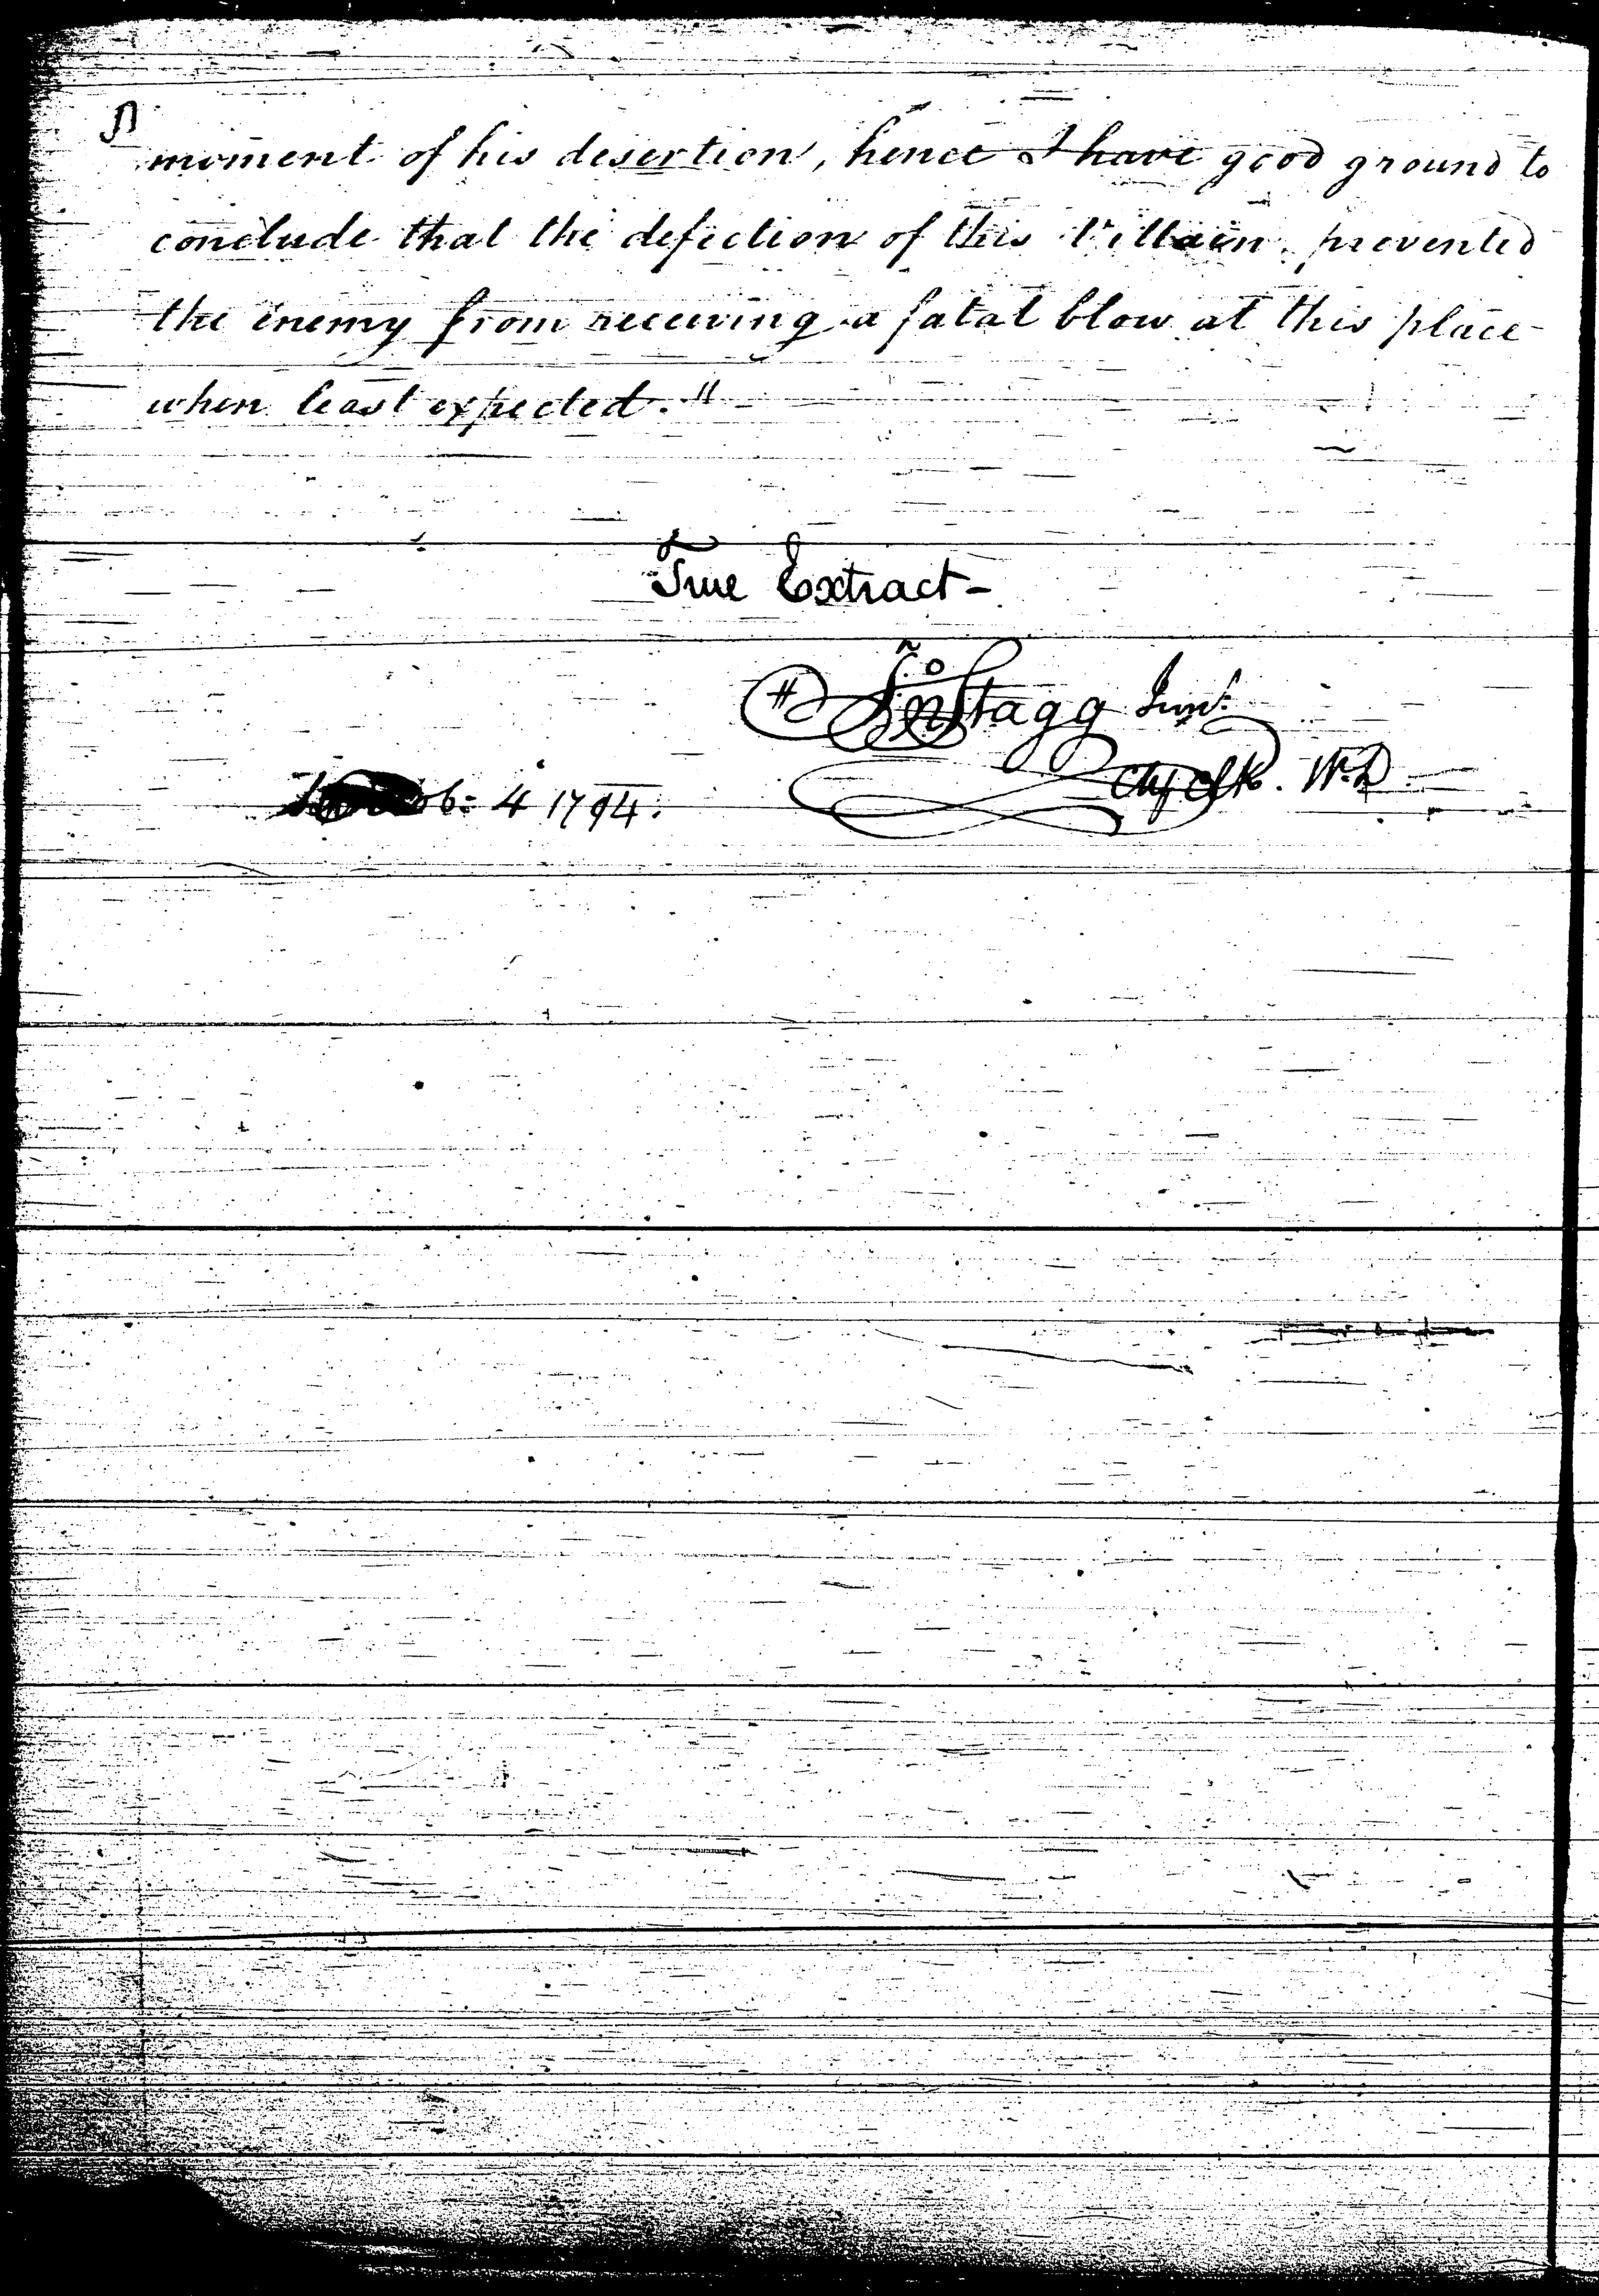 moment of his desertion, hence I have good ground to
conclude that the defection of this Villain, prevented
the enemy from receiving a fatal blow at this place
when least expected."
True Extract-
Jno Stagg Junr.
Chf Clk. W.D.
4 1794.